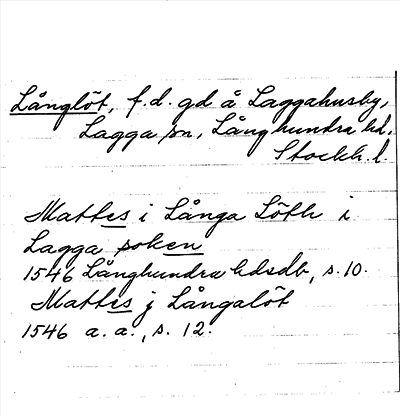 Långlöt, f.d. gd å Laggahusby,
Lagga sn, Långhundra hd.
Stockh. l.
Mattes i Långa Löth i
Lagga soken
1546 Långhundra hdsdb, s. 10.
Mattes j Långalöt
1546 a. a., s. 12.